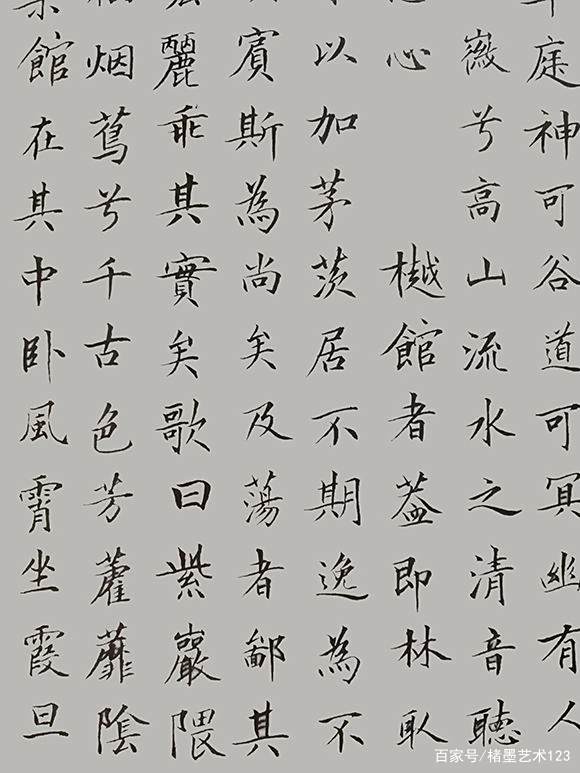 庭神可谷道可冥幽有人
徽兮高山流水之清音聽
心 樾館者蓋即林取
以加茅茨居不期逸為不
賓斯為尚矣及蕩者鄙其
麗乖其實矣歌曰紫巖隈
烟蔦兮千古色芳藿蘼陰
館在其中卧風霄坐霞旦
百家号/楮墨艺术123